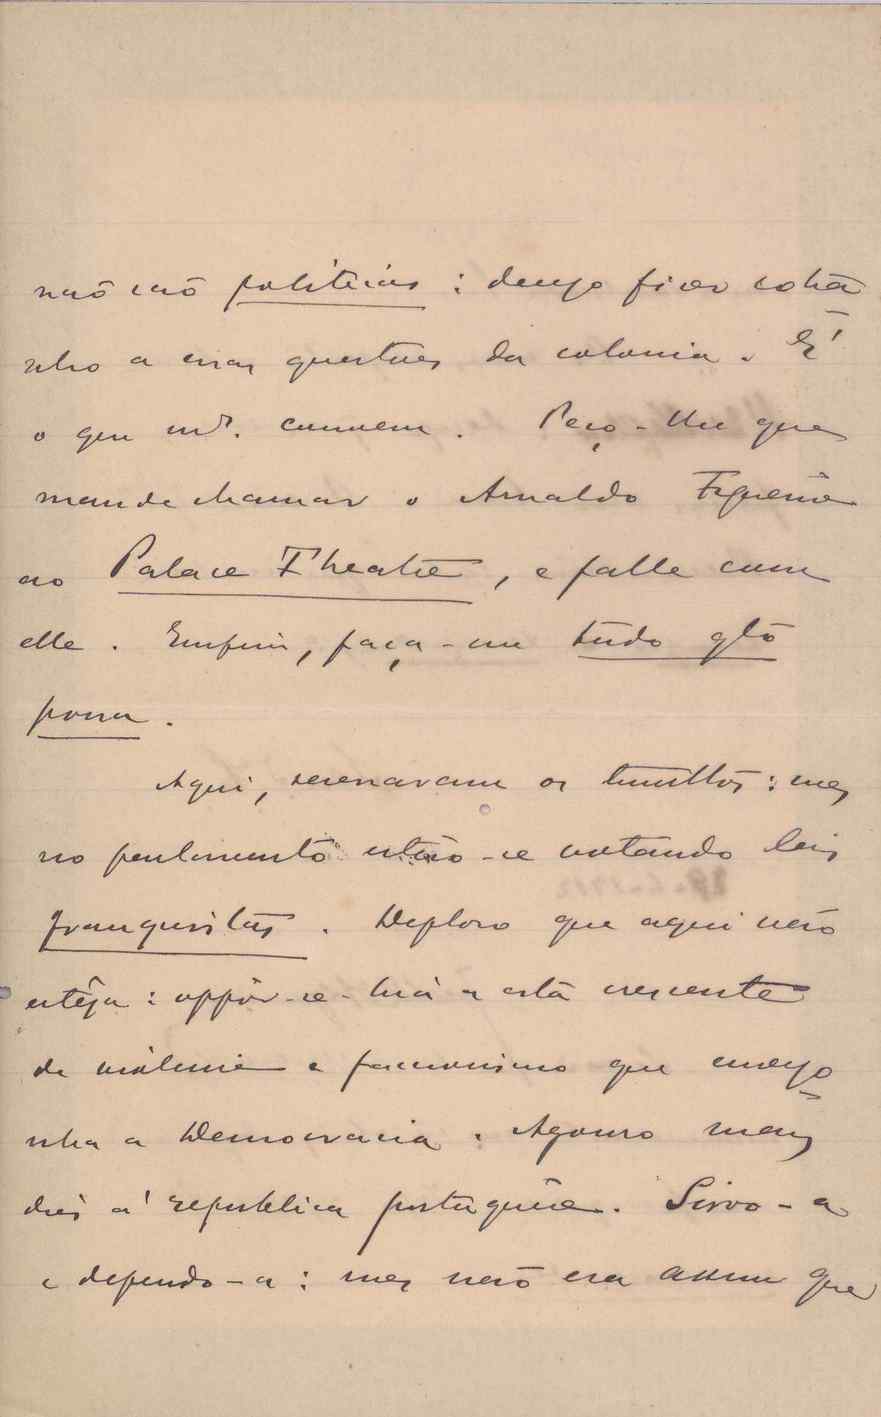 não são políticas : desejo ficar extra-
nho a essas questões da colonia . É
o que me convem . Peço-lhe que
mande chamar o Arnaldo Figuerôa
ao Palace Theatre , e falle com
elle . Emfim , faça-me tudo qto
possa .
Aqui , serenaram os tumultos : mas
no parlamento estão-se votando leis
franquistas . Deploro que aqui não
estêja : oppôr-se-hia a esta crescente
de violencia e faccionismo que envergo-
nha a Democracia . Agouro maus
dias á republica portuguêsa . Sirvo-a
e defendo-a : mas não era assim que